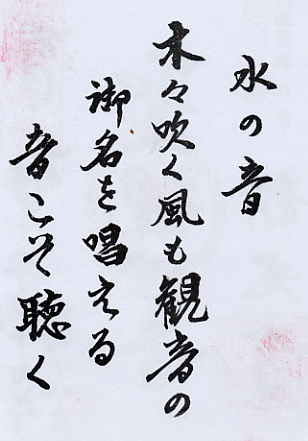 水の音
木々吹く風も観音の
御名を唱える
音こそ聴く